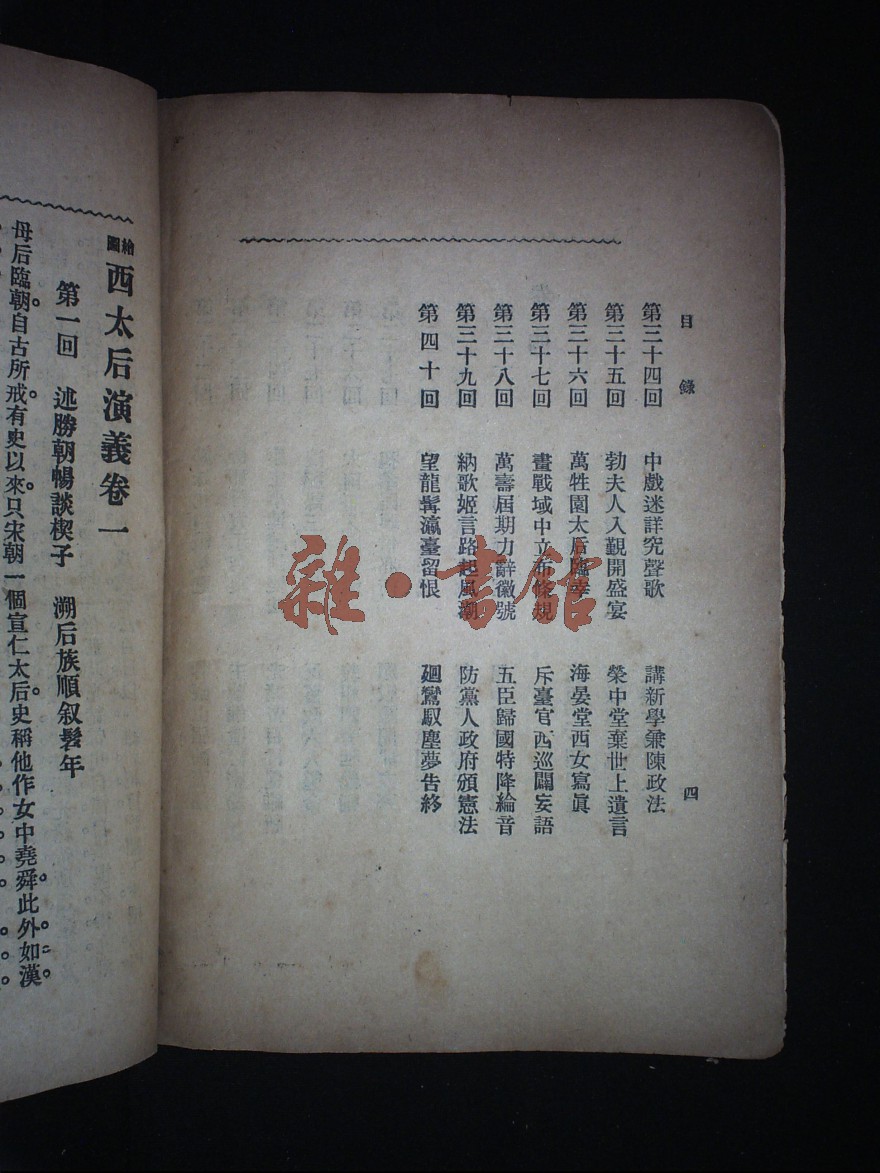 目錄
四
第三十四回 中戲迷詳究聲歌 講新學兼陳政法
第三十五回 勃夫人入覲開盛宴 榮中堂棄世上遺言
第三十六回 萬牲園太后臨幸 海晏堂西女寫眞
第三十七回 畫戰域中立布條規 斥臺官西巡闢妄語
第三十八回 萬壽屆期力辭徽號 五臣歸國特降綸音
第三十九回 納歌姬言路起風潮 防黨人政府頒憲法
第四十回 望龍髯瀛臺留恨 廻鸞馭塵夢告終
繪圖西太后演義卷一
第一回 述勝朝暢談楔子 溯后族順叙髫年
母后臨朝自古所戒有史以來只宋朝一個宣仁太后史稱他作女中堯舜此外如漢
雜·書館